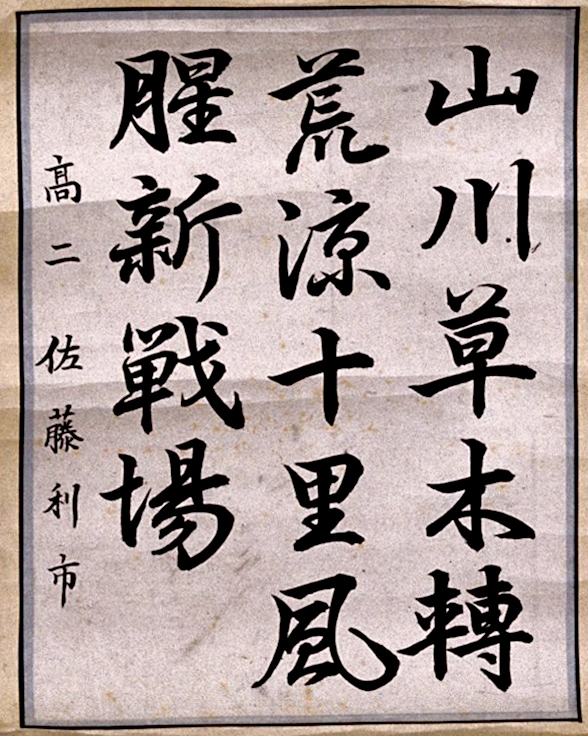 山川草木轉
荒涼十里風
腥新戰場
高二佐藤利市